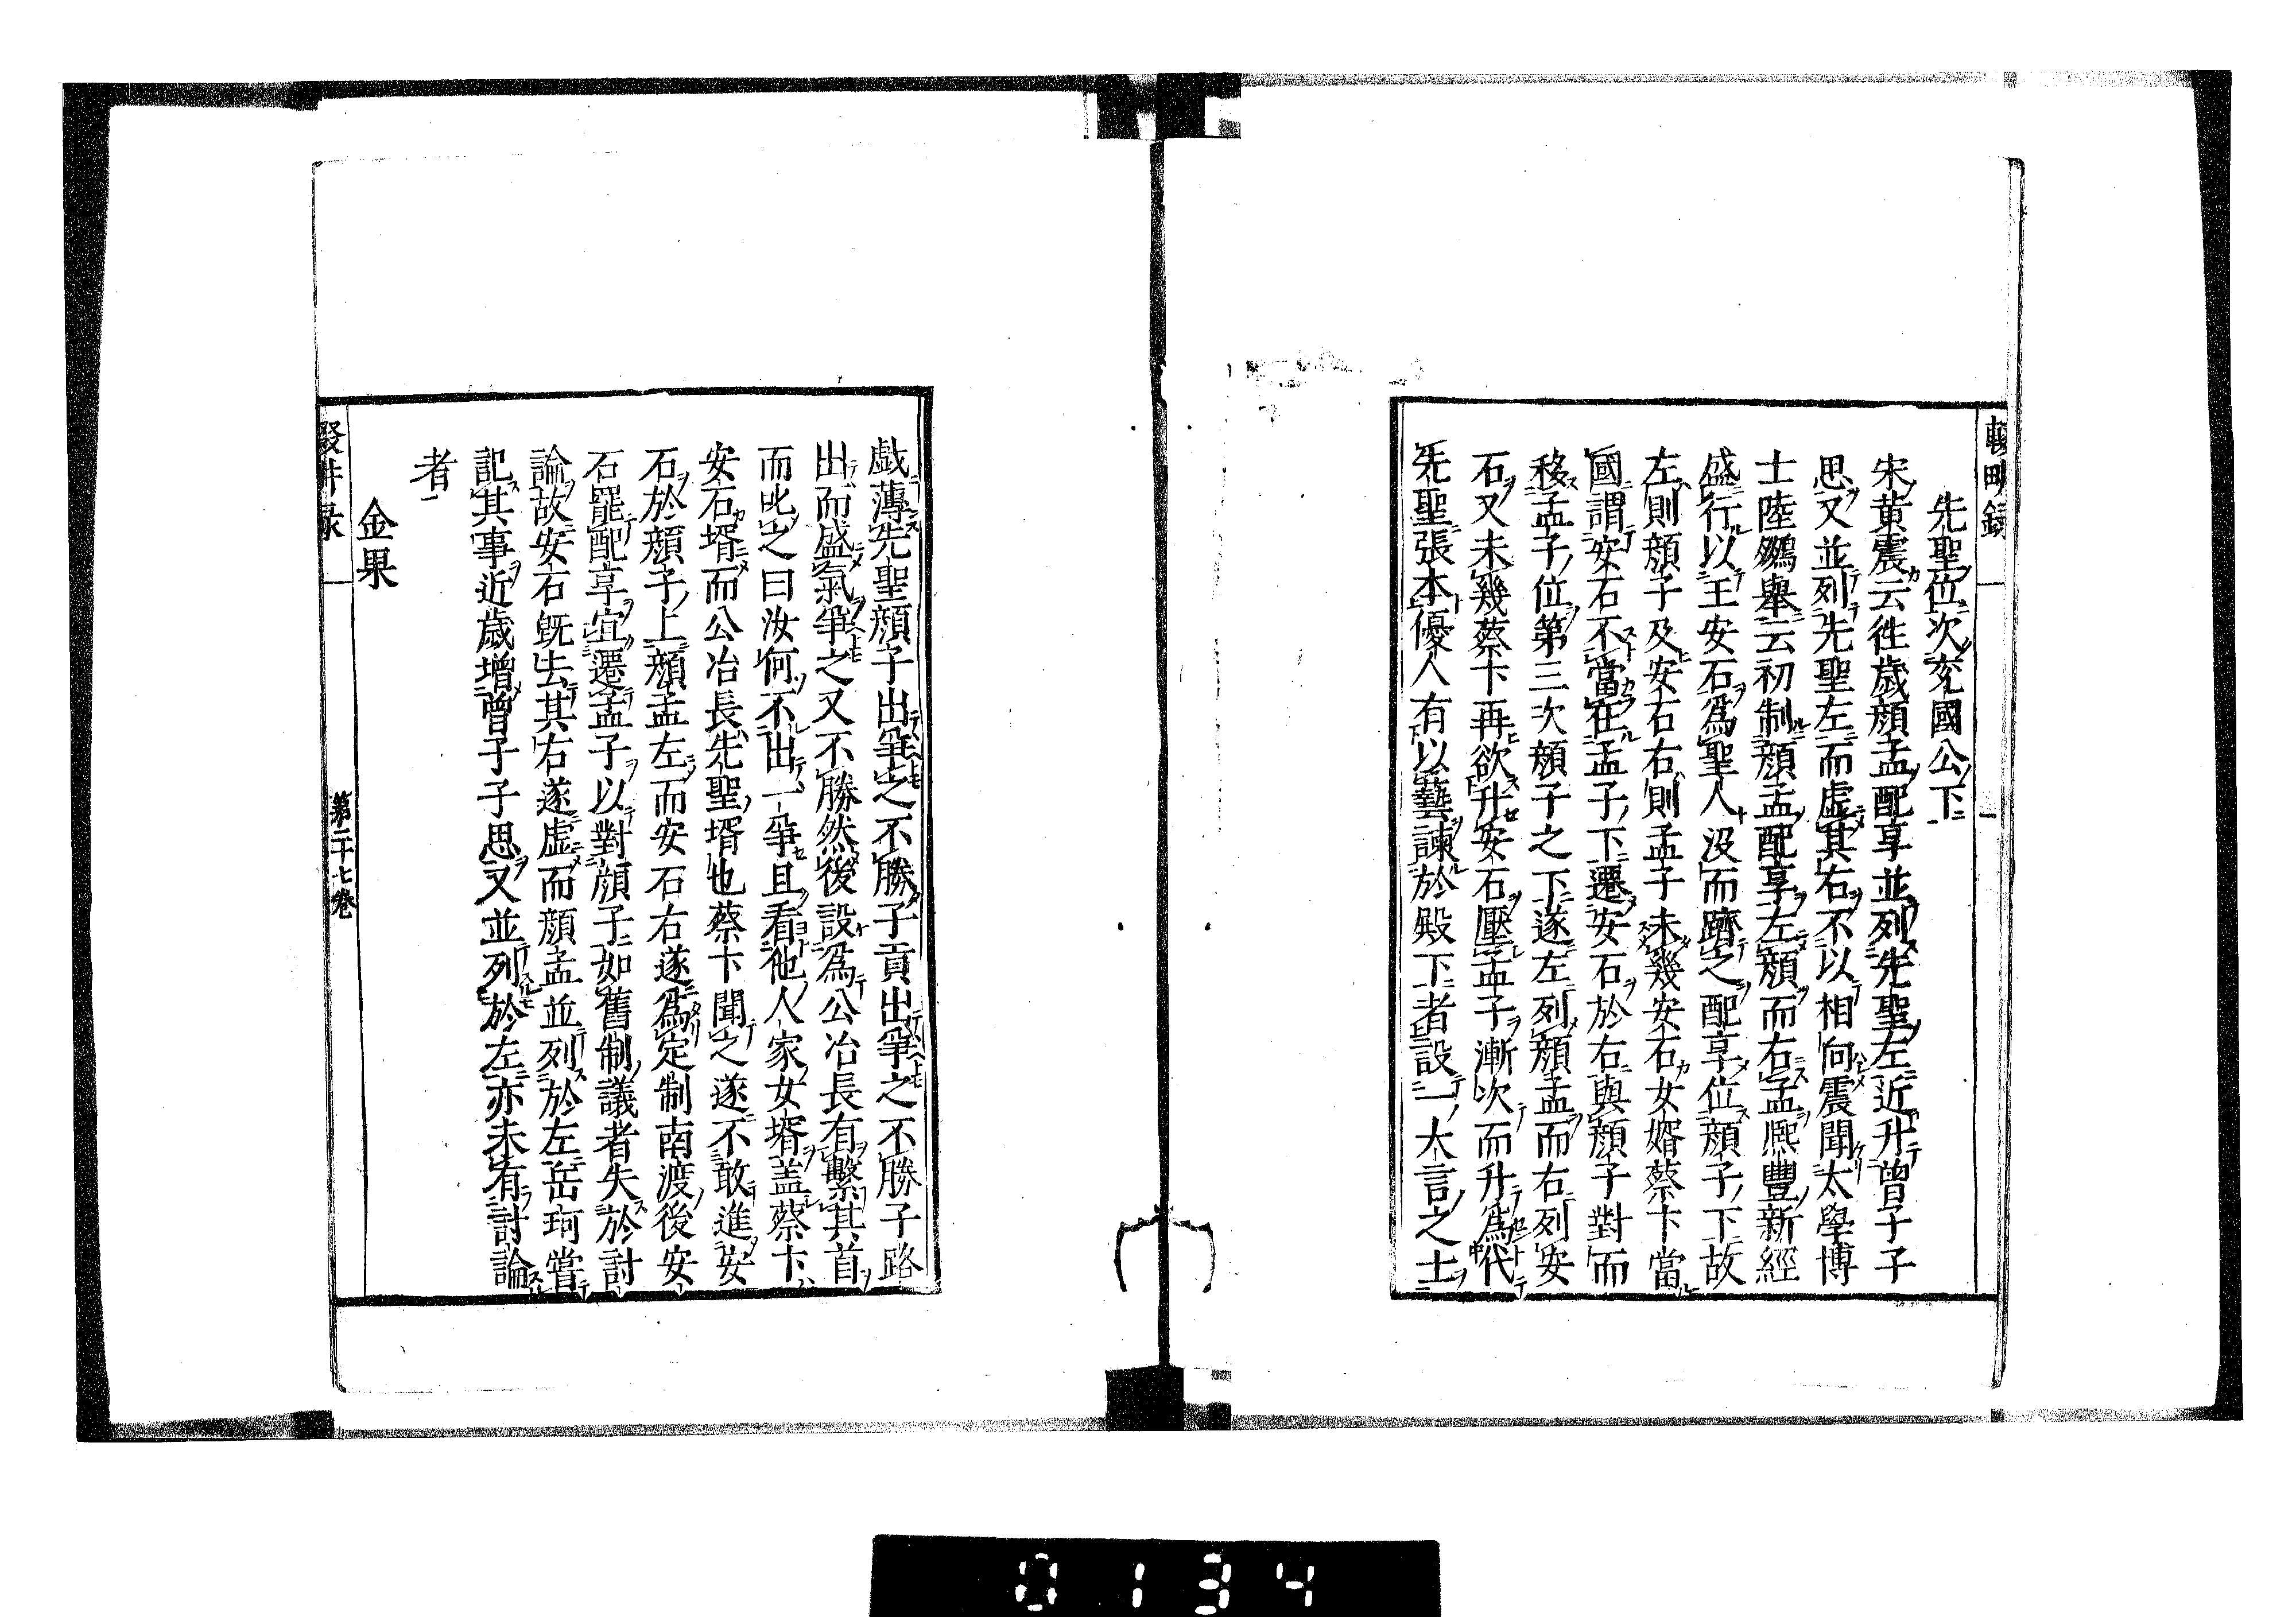 輟畊録
先聖位次兖國公下
宋黄震云徃歳顔孟配享並列先聖左近升曽子子
思又並列先聖左而虚其右不以相向震聞太學博
士陸鵬舉云初制顔孟配享左顔而右孟熈豐新經
盛行以王安石爲聖人没而躋之配享位顔子下故
左則顔子及安石右則孟子未幾安石女婿蔡卞當
國謂安石不當在孟子下遷安石於右與顔子對而
移孟子位第三次顔子之下遂左列顔孟而右列安
石又未幾蔡卞再欲升安石壓孟子漸次而升爲代
先聖張本優人有以藝諫於殿下者設一大言之士
戯薄先聖顔子出爭之不勝子貢出爭之不勝子路
出而盛氣爭之又不勝然後設爲公冶長有繫其首
而叱之曰汝何不出一爭且看他人家女壻盖蔡卞
安石壻而公冶長先聖壻也蔡卞聞之遂不敢進安
石於顔子上顔孟左而安石右遂爲定制南渡後安
石罷配享宜遷孟子以對顔子如舊制議者失於討
論故安石旣去其右遂虚而顔孟並列於左岳珂嘗
記其事近歳増曽子子思又並列於左亦未有討論
者
金果
輟畊录
第二十七巻
0134